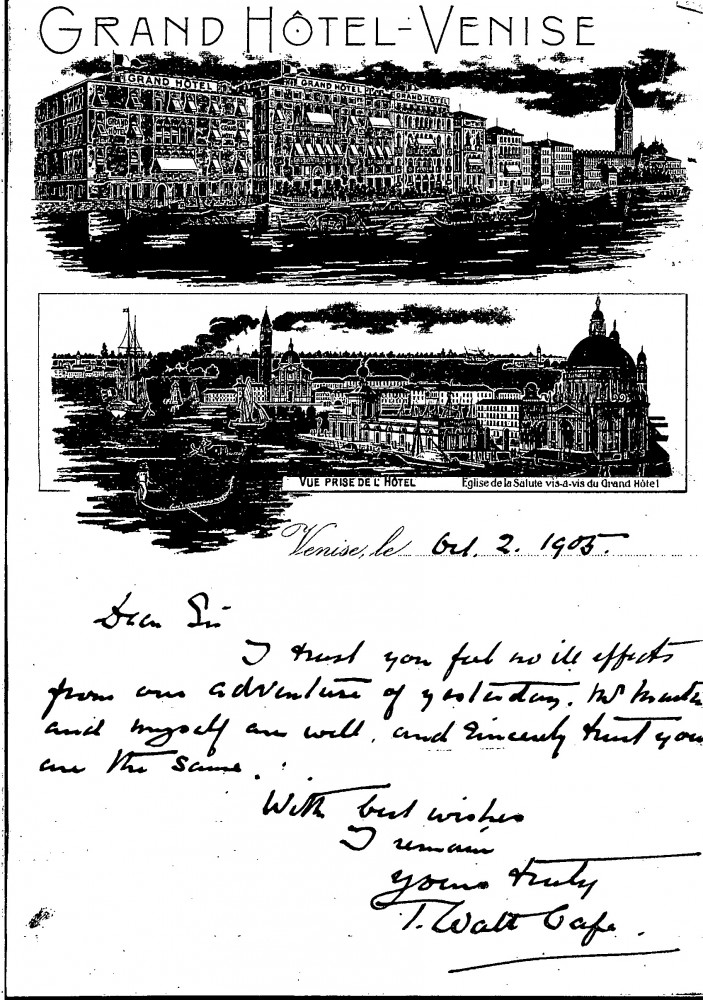 GRAND HÔTEL-VENISE
GRAND HOTEL
GRAND HOTEL
GRAND HOTEL
VUE PRISE DE L'HÔTEL
Eglise de la Salute vis-a-vis du Grand Hôtel
Venise, le Oct. 2. 1905.
Dear Sir
I trust you feel no ill effects
from our adventure of yesterday. Mr
and myself are well, and sincerely trust you
are the same.
With best wishes
I remain
yours truly
T. Watt Cafe.